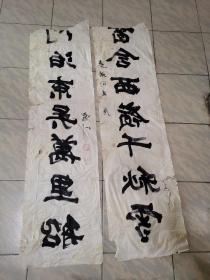 窗含西嶺千秋雪
門泊東吳萬里船